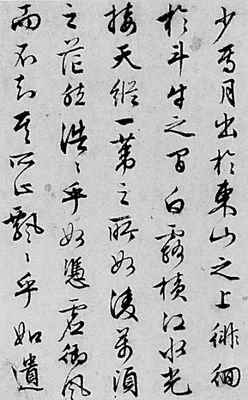 少焉月出於東山之上徘徊
於斗牛之間白露橫江水光
接天縱一葦之所如凌萬頃
之茫然浩〻乎如憑虛御風
而不知其所止飄〻乎如遺